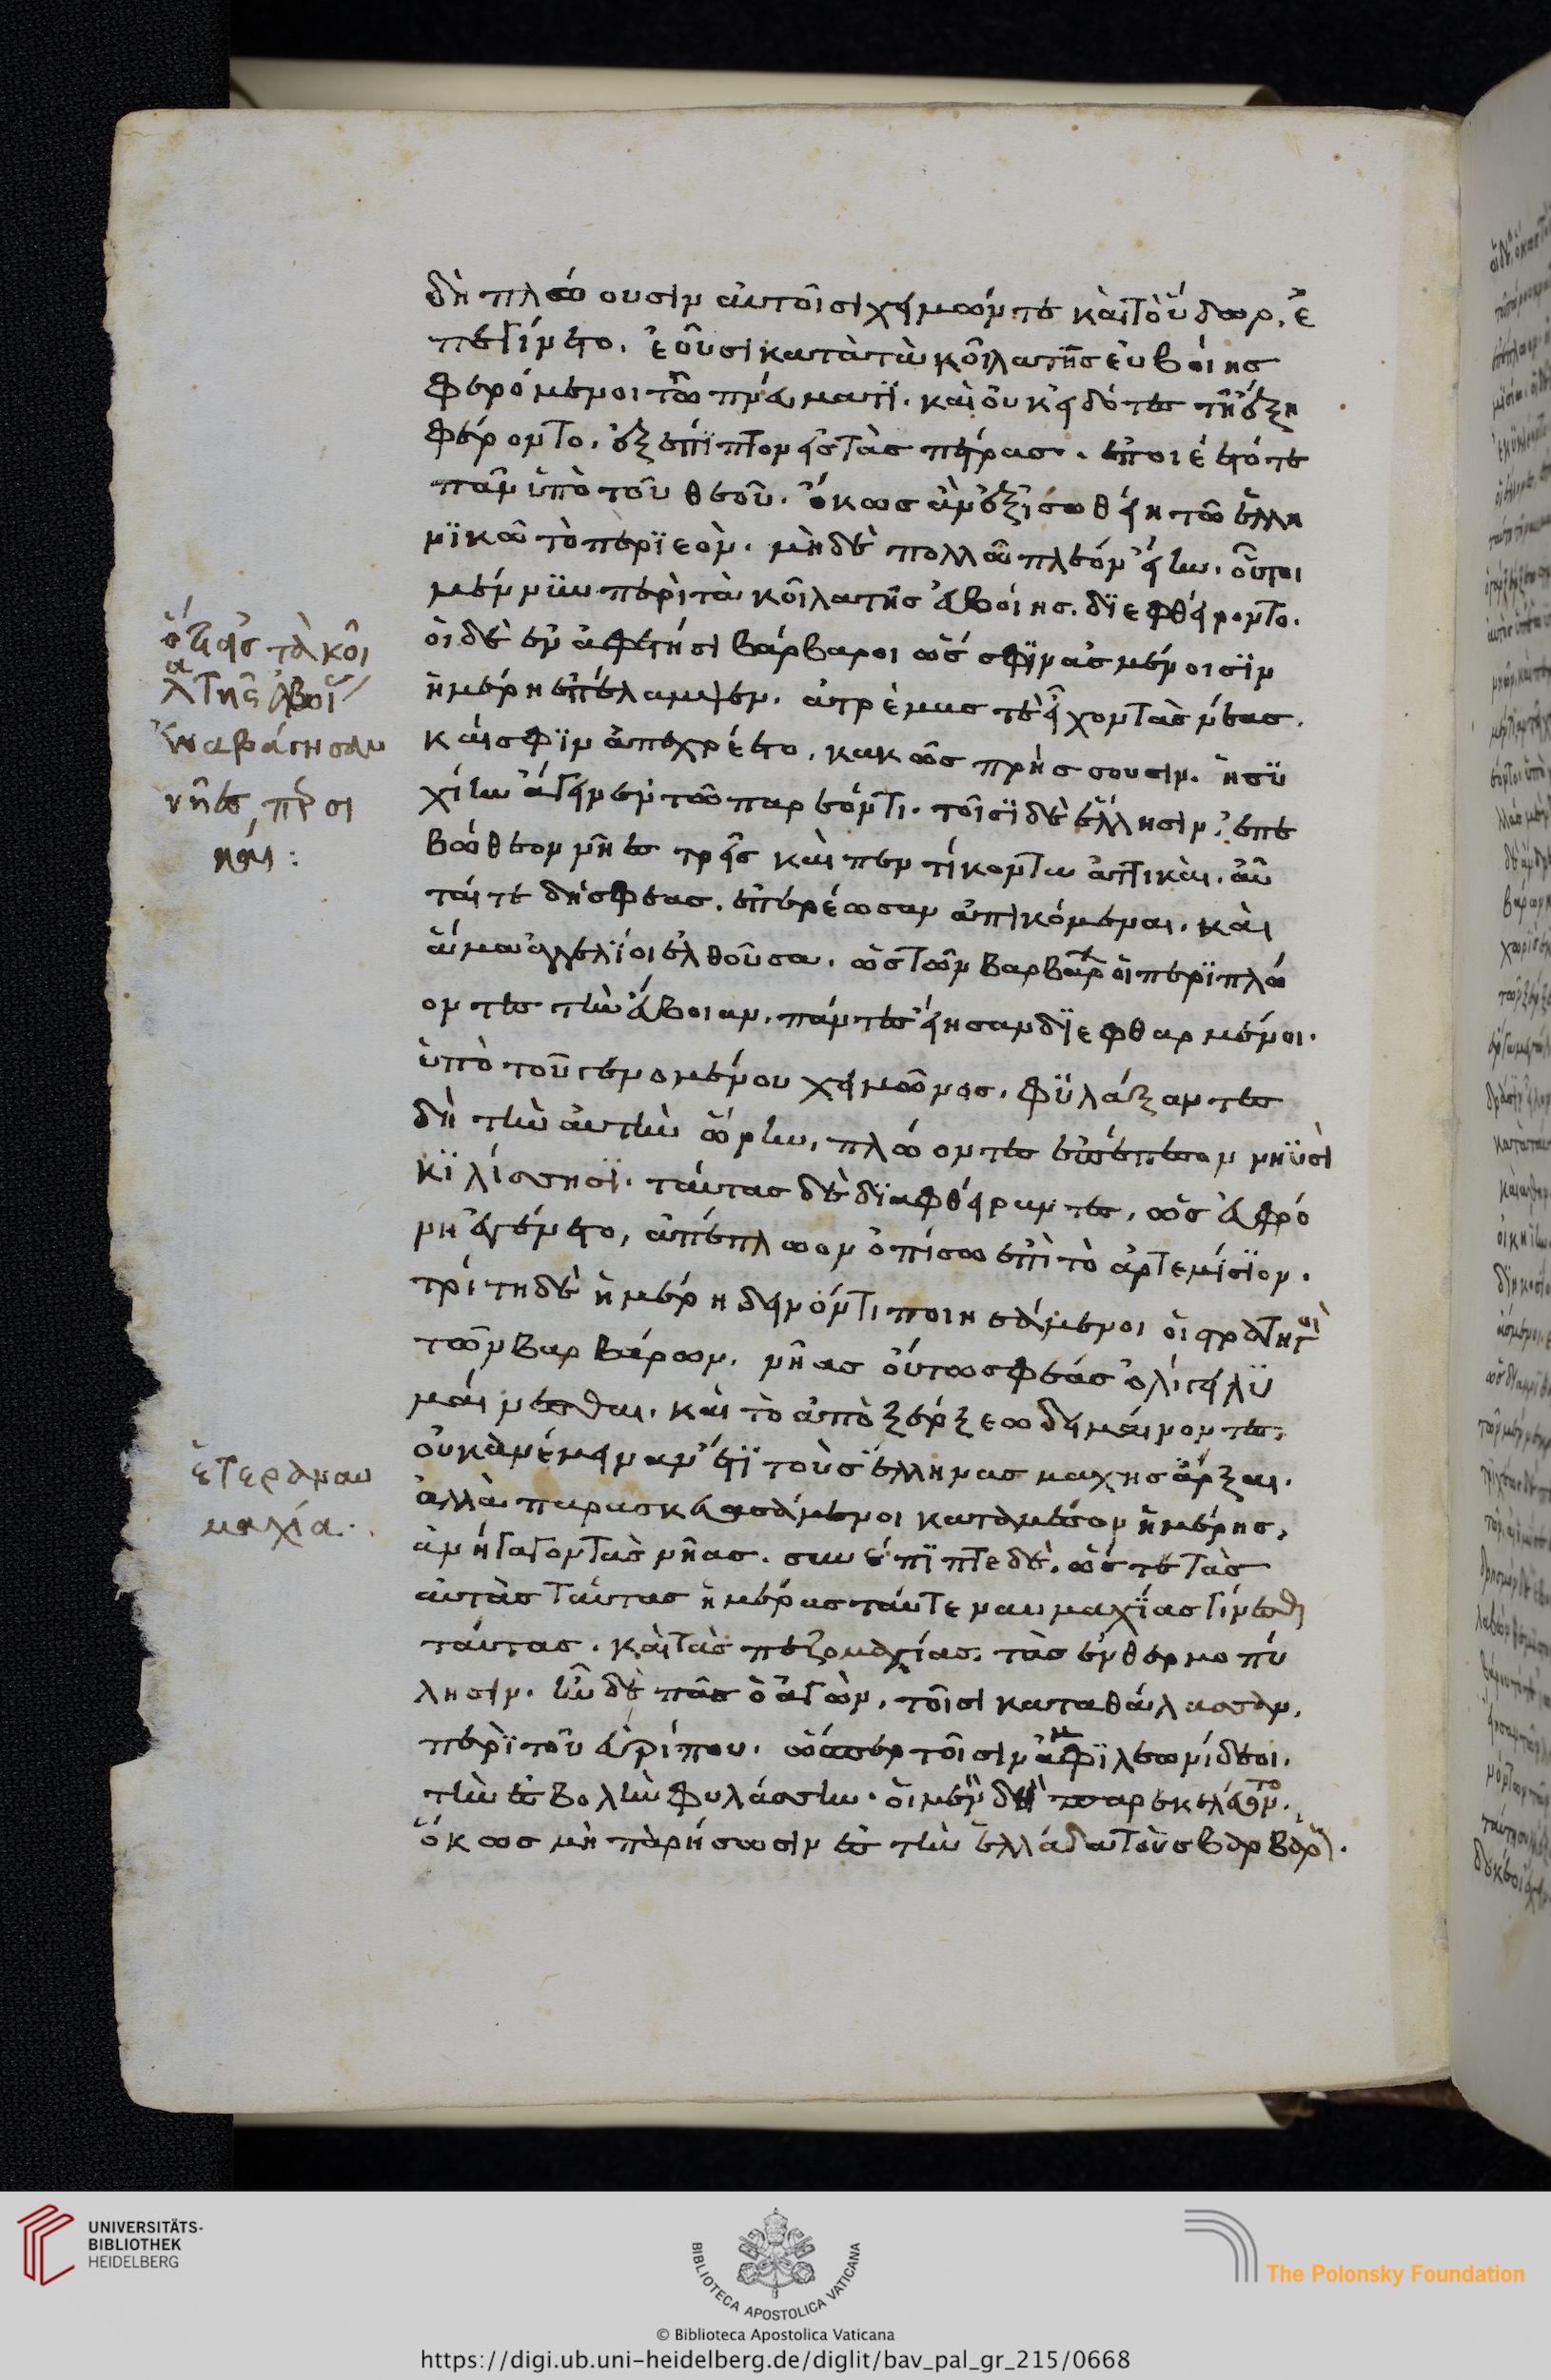 δὴ πλώουσιν αὐτοῖσι χειμών τε καὶ τὸ ὕδωρ. ἐ
πεγίνετο. ἐοῦσι κατὰ τὰ κοῖλα τῆς εὐβοίης
φερόμενοι τῶ πνεύματι. καὶ οὐκ εἰδότες τῆ ἐξη
φέροντο. ἐξέπιπτον ἐς τὰς πέτρας. ἐποιέετό τε
πᾶν ὑπὸ τοῦ θεοῦ. ὅκως ἂν ἐξισωθείη τῶ ἑλλη
νικῶ τὸ περσικὸν. μὴ δὲ πολλῶ πλέον εἴη. οὗτοι
μέν νυν περὶ τὰ κοῖλα τῆς εὐβοίης. διεφθείροντο.
οἱ δὲ ἐν ἀφετῆσι βάρβαροι ὥς σφιν ἀσμένοισιν
ἡμέρη ἐπέλαμψεν. ἀτρέμας τὲ εἶχον τὰς νέας.
καί σφιν ἀπεχρέετο. κακῶς πρήσσουσιν. ἡσυ
χίην ἄγειν ἐν τῶ παρεόντι. τοῖσι δὲ ἕλλησιν. ἐπε
βώθεον νῆες τρεῖς καὶ πεντήκοντα ἀττικαὶ. αὗ
ταί τε δή σφεας. ἐπέρρωσαν ἀπικόμεναι. καὶ
ἅμα ἀγγελίη ἐλθοῦσα. ὡς τῶν βαρβάρων οἱ περιπλώ
οντες τὴν εὔβοιαν. πάντες εἴησαν διεφθαρμένοι.
ὑπὸ τοῦ γενομένου χειμῶνος. φυλάξαντες
δὴ τὴν αὐτὴν ὥρην, πλώοντες ἐπέπεσον νηυσὶ
κιλίσσησι. ταύτας δὲ διαφθείραντες, ὡς εὐφρό
νη ἐγένετο, ἀπέπλωον ὀπίσω ἐπὶ τὸ ἀρτεμίσιον.
τρίτη δὲ ἡμέρη δεινόν τι ποιησάμενοι οἱ στρατηγοὶ
τῶν βαρβάρων. νῆας οὕτω σφέας ὀλίγας λυ
μαίνεσθαι. καὶ τὸ ἀπὸ ξέρξεω δειμαίνοντες.
οὐκ ἀνέμειναν ἔτι τοὺς ἕλληνας μάχης ἄρξαι.
ἀλλὰ παρασκευασάμενοι κατὰ μέσον ἡμέρης,
ἀνήγαγον τὰς νῆας. συνέπιπτε δὲ. ὥς τε τὰς
αὐτὰς ταύτας ἡμέρας ταύτε ναυμαχίας γίνεσθαι
ταύτας. καὶ τὰς πεζομαχίας. τὰς ἐν θερμοπύ
λησιν. ἦν δὲ πᾶς ὁ ἀγὼν. τοῖσι κατὰ θάλασσαν.
περὶ τοῦ εὐρίπου. ὥσπερ τοῖσιν ἀμφὶ λεωνίδεω.
τὴν ἐσβολὴν φυλάσσειν. οἱ μὲν δὴ παρεκελεύοντο.
ὅκως μὴ παρήσωσιν ἐς τὴν ἑλλάδα τοὺς βαρβάρους.
ὅτι ἐς τὰ κοῖ
λα τῆς εὐβοί
ἐναυάγησαν
νῆες περσι
καί:
ἑτέρα ναυ
μαχία.
UNIVERSITÄTS-
BIBLIOTHEK
HEIDELBERG
BIBLIOTECA APOSTOLICA VATICANA
© Biblioteca Apostolica Vaticana
The Polonsky Foundation
https://digi.ub.uni-heidelberg.de/diglit/bav_pal_gr_215/0668